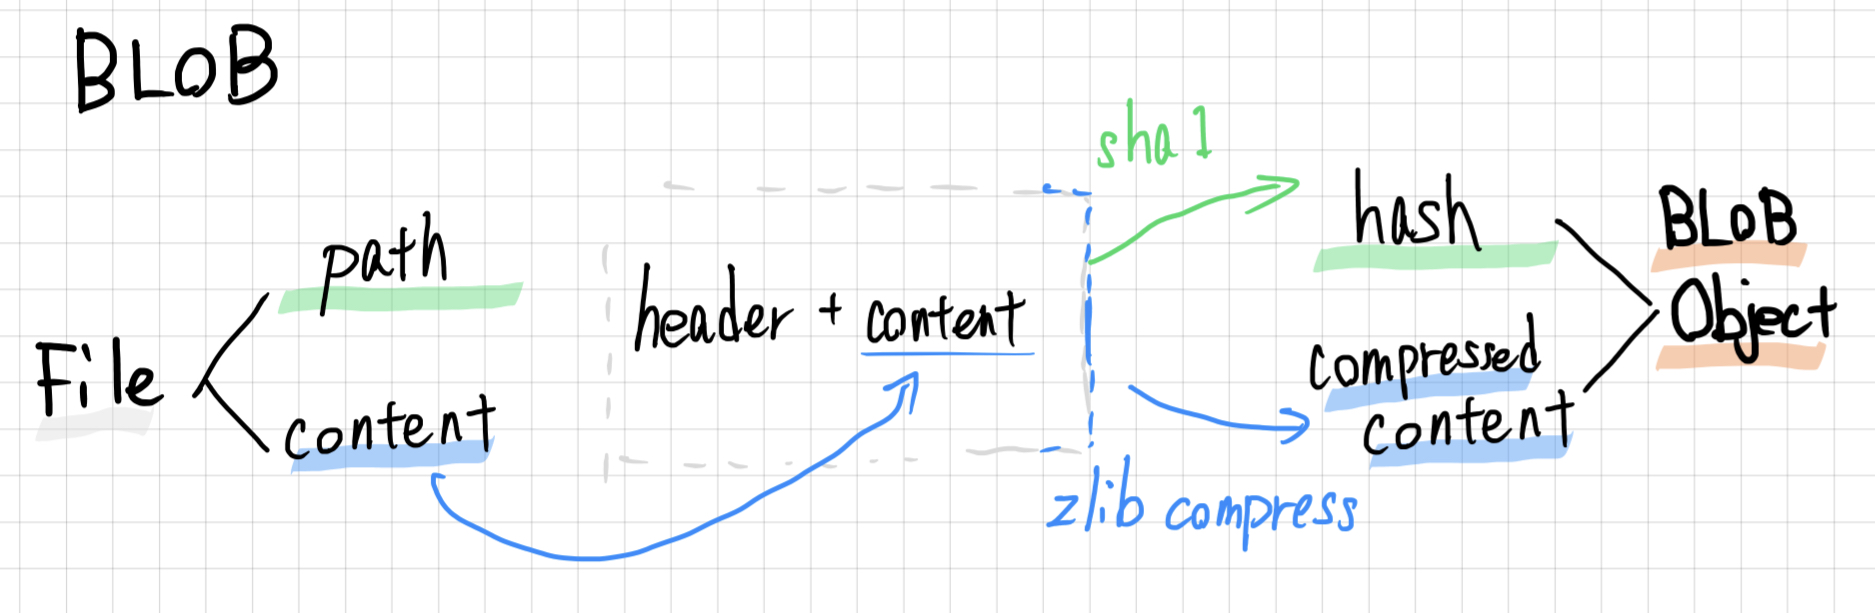 BLOB
File
path
content
header + content
sha1
zlib compress
hash
compressed
content
BLOB
Object